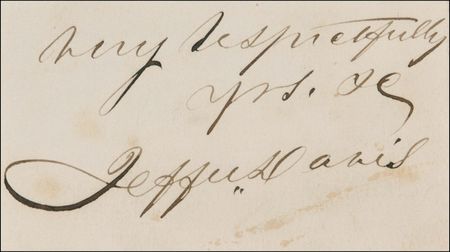 very respectfully
yrs. &c
Jeffn Davis